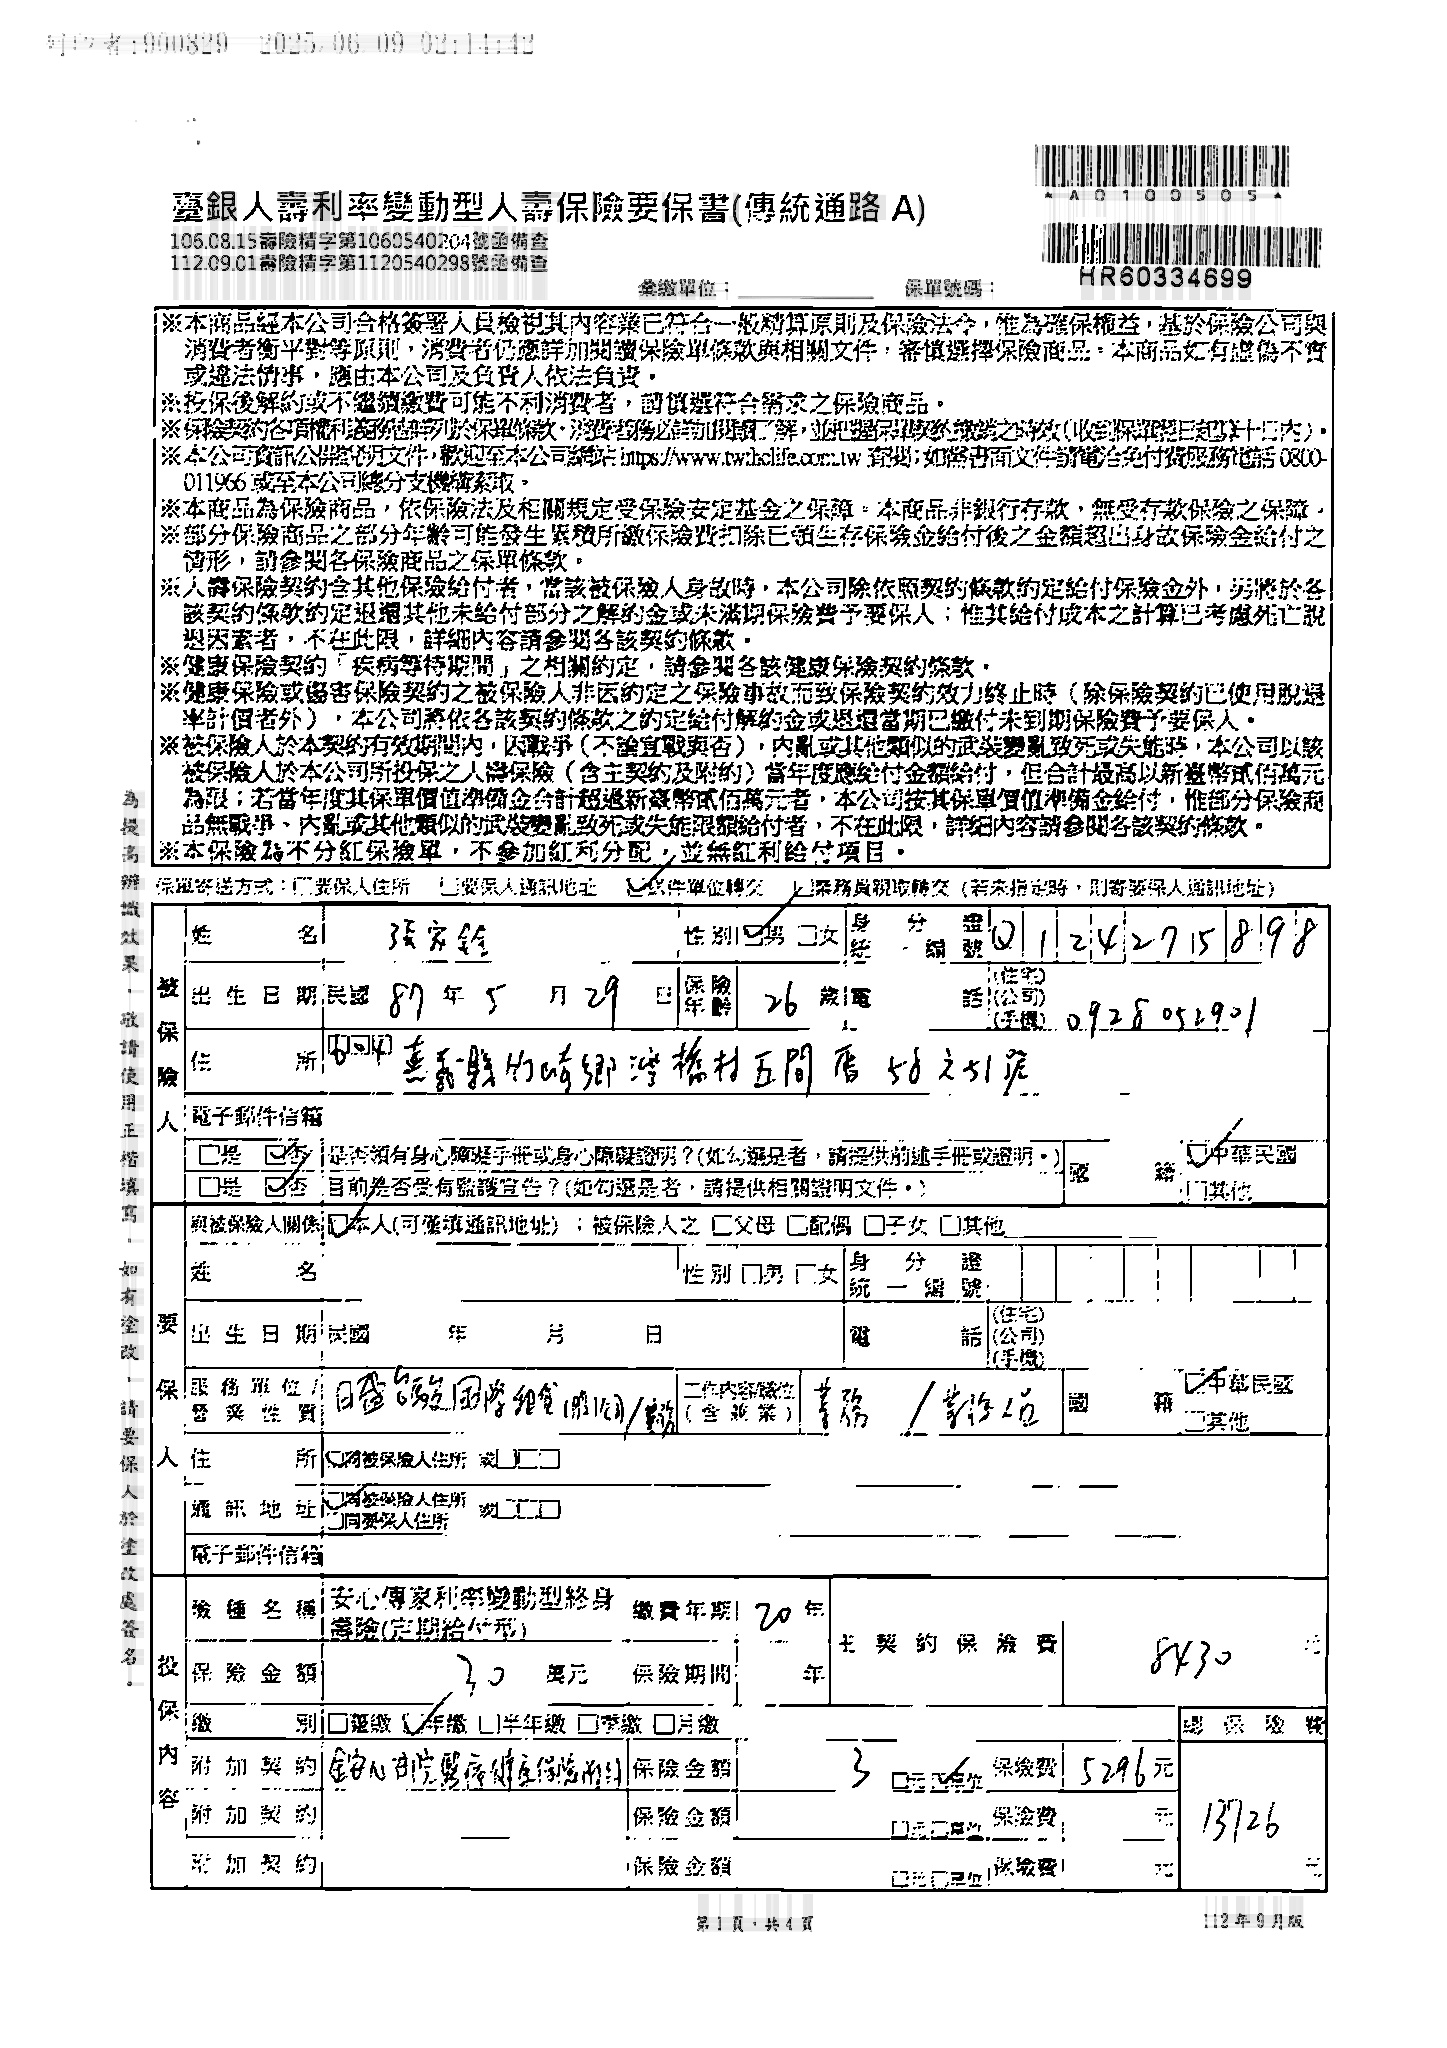 列印者:900829 2025/06/09 02:14:42
*A0100505*
臺銀人壽利率變動型人壽保險要保書(傳統通路 A)
106.08.15壽險精字第1060540204號函備查
112.09.01壽險精字第1120540298號函備查
HR60334699
彙繳單位： 保單號碼：
※本商品經本公司合格簽署人員檢視其內容業已符合一般精算原則及保險法令，惟為確保權益，基於保險公司與
消費者衡平對等原則，消費者仍應詳加閱讀保險單條款與相關文件，審慎選擇保險商品。本商品如有虛偽不實
或違法情事，應由本公司及負責人依法負責。
※投保後解約或不繼續繳費可能不利消費者，請慎選符合需求之保險商品。
※保險契約各項權利義務皆詳列於保單條款，消費者務必詳加閱讀了解，並把握保單契約撤銷之時效(收到保單翌日起算十日內)。
※本公司資訊公開說明文件，歡迎至本公司網站 https://www.twfhclife.com.tw 查閱；如需書面文件請電洽免付費服務電話 0800-
011966 或至本公司總分支機構索取。
※本商品為保險商品，依保險法及相關規定受保險安定基金之保障。本商品非銀行存款，無受存款保險之保障。
※部分保險商品之部分年齡可能發生累積所繳保險費扣除已領生存保險金給付後之金額超出身故保險金給付之
情形，請參閱各保險商品之保單條款。
※人壽保險契約含其他保險給付者，當該被保險人身故時，本公司除依照契約條款約定給付保險金外，另將於各
該契約條款約定退還其他未給付部分之解約金或未滿期保險費予要保人；惟其給付成本之計算已考慮死亡脫
退因素者，不在此限，詳細內容請參閱各該契約條款。
※健康保險契約「疾病等待期間」之相關約定，請參閱各該健康保險契約條款。
※健康保險或傷害保險契約之被保險人非因約定之保險事故而致保險契約效力終止時（除保險契約已使用脫退
率計價者外），本公司將依各該契約條款之約定給付解約金或退還當期已繳付未到期保險費予要保人。
※被保險人於本契約有效期間內，因戰爭（不論宣戰與否），內亂或其他類似的武裝變亂致死或失能時，本公司以該
被保險人於本公司所投保之人壽保險（含主契約及附約）當年度應給付金額給付，但合計最高以新臺幣貳佰萬元
為限；若當年度其保單價值準備金合計超過新臺幣貳佰萬元者，本公司按其保單價值準備金給付，惟部分保險商
品無戰爭、內亂或其他類似的武裝變亂致死或失能限額給付者，不在此限，詳細內容請參閱各該契約條款。
※本保險為不分紅保險單，不參加紅利分配，並無紅利給付項目。
為提高辨識效果，敬請使用正楷填寫。如有塗改，請要保人於塗改處簽名。
保單寄送方式：□要保人住所 □要保人通訊地址 ☑收件單位轉交 □業務員親取轉交 (若未指定時，則寄要保人通訊地址)
被保險人
姓名 張家銓 性別 ☑男 □女 身分證統一編號 Q124271589 8
出生日期 民國 87 年 5 月 29 日 保險年齡 26 歲 電話 (住宅)
(公司)
(手機) 0928052901
住所 604 嘉義縣竹崎鄉灣橋村五間厝58之51號
電子郵件信箱
□是 ☑否 是否領有身心障礙手冊或身心障礙證明？(如勾選是者，請提供前述手冊或證明。) 國籍 ☑中華民國
□是 ☑否 目前是否受有監護宣告？(如勾選是者，請提供相關證明文件。) □其他
要保人
與被保險人關係 ☑本人(可僅填通訊地址)；被保險人之 □父母 □配偶 □子女 □其他
姓名 性別 □男 □女 身分證統一編號
出生日期 民國 年 月 日 電話 (住宅)
(公司)
(手機)
服務單位/營業性質 工作內容/職位(含兼業) 業務 / 業務人員 國籍 ☑中華民國
□其他
住所 ☑同被保險人住所 或□□□
通訊地址 ☑同被保險人住所 或□□□
□同要保人住所
電子郵件信箱
投保內容
險種名稱 安心傳家利率變動型終身壽險(定期給付型) 繳費年期 20 年 主契約保險費 8430 元
保險金額 30 萬元 保險期間 年
繳別 □躉繳 ☑年繳 □半年繳 □季繳 □月繳 總保險費
附加契約 保險金額 3 □元 ☑單位 保險費 5296 元
13726
附加契約 保險金額 □元 □單位 保險費 元
附加契約 保險金額 □元 □單位 保險費 元 元
第 1 頁，共 4 頁
112 年 9 月版